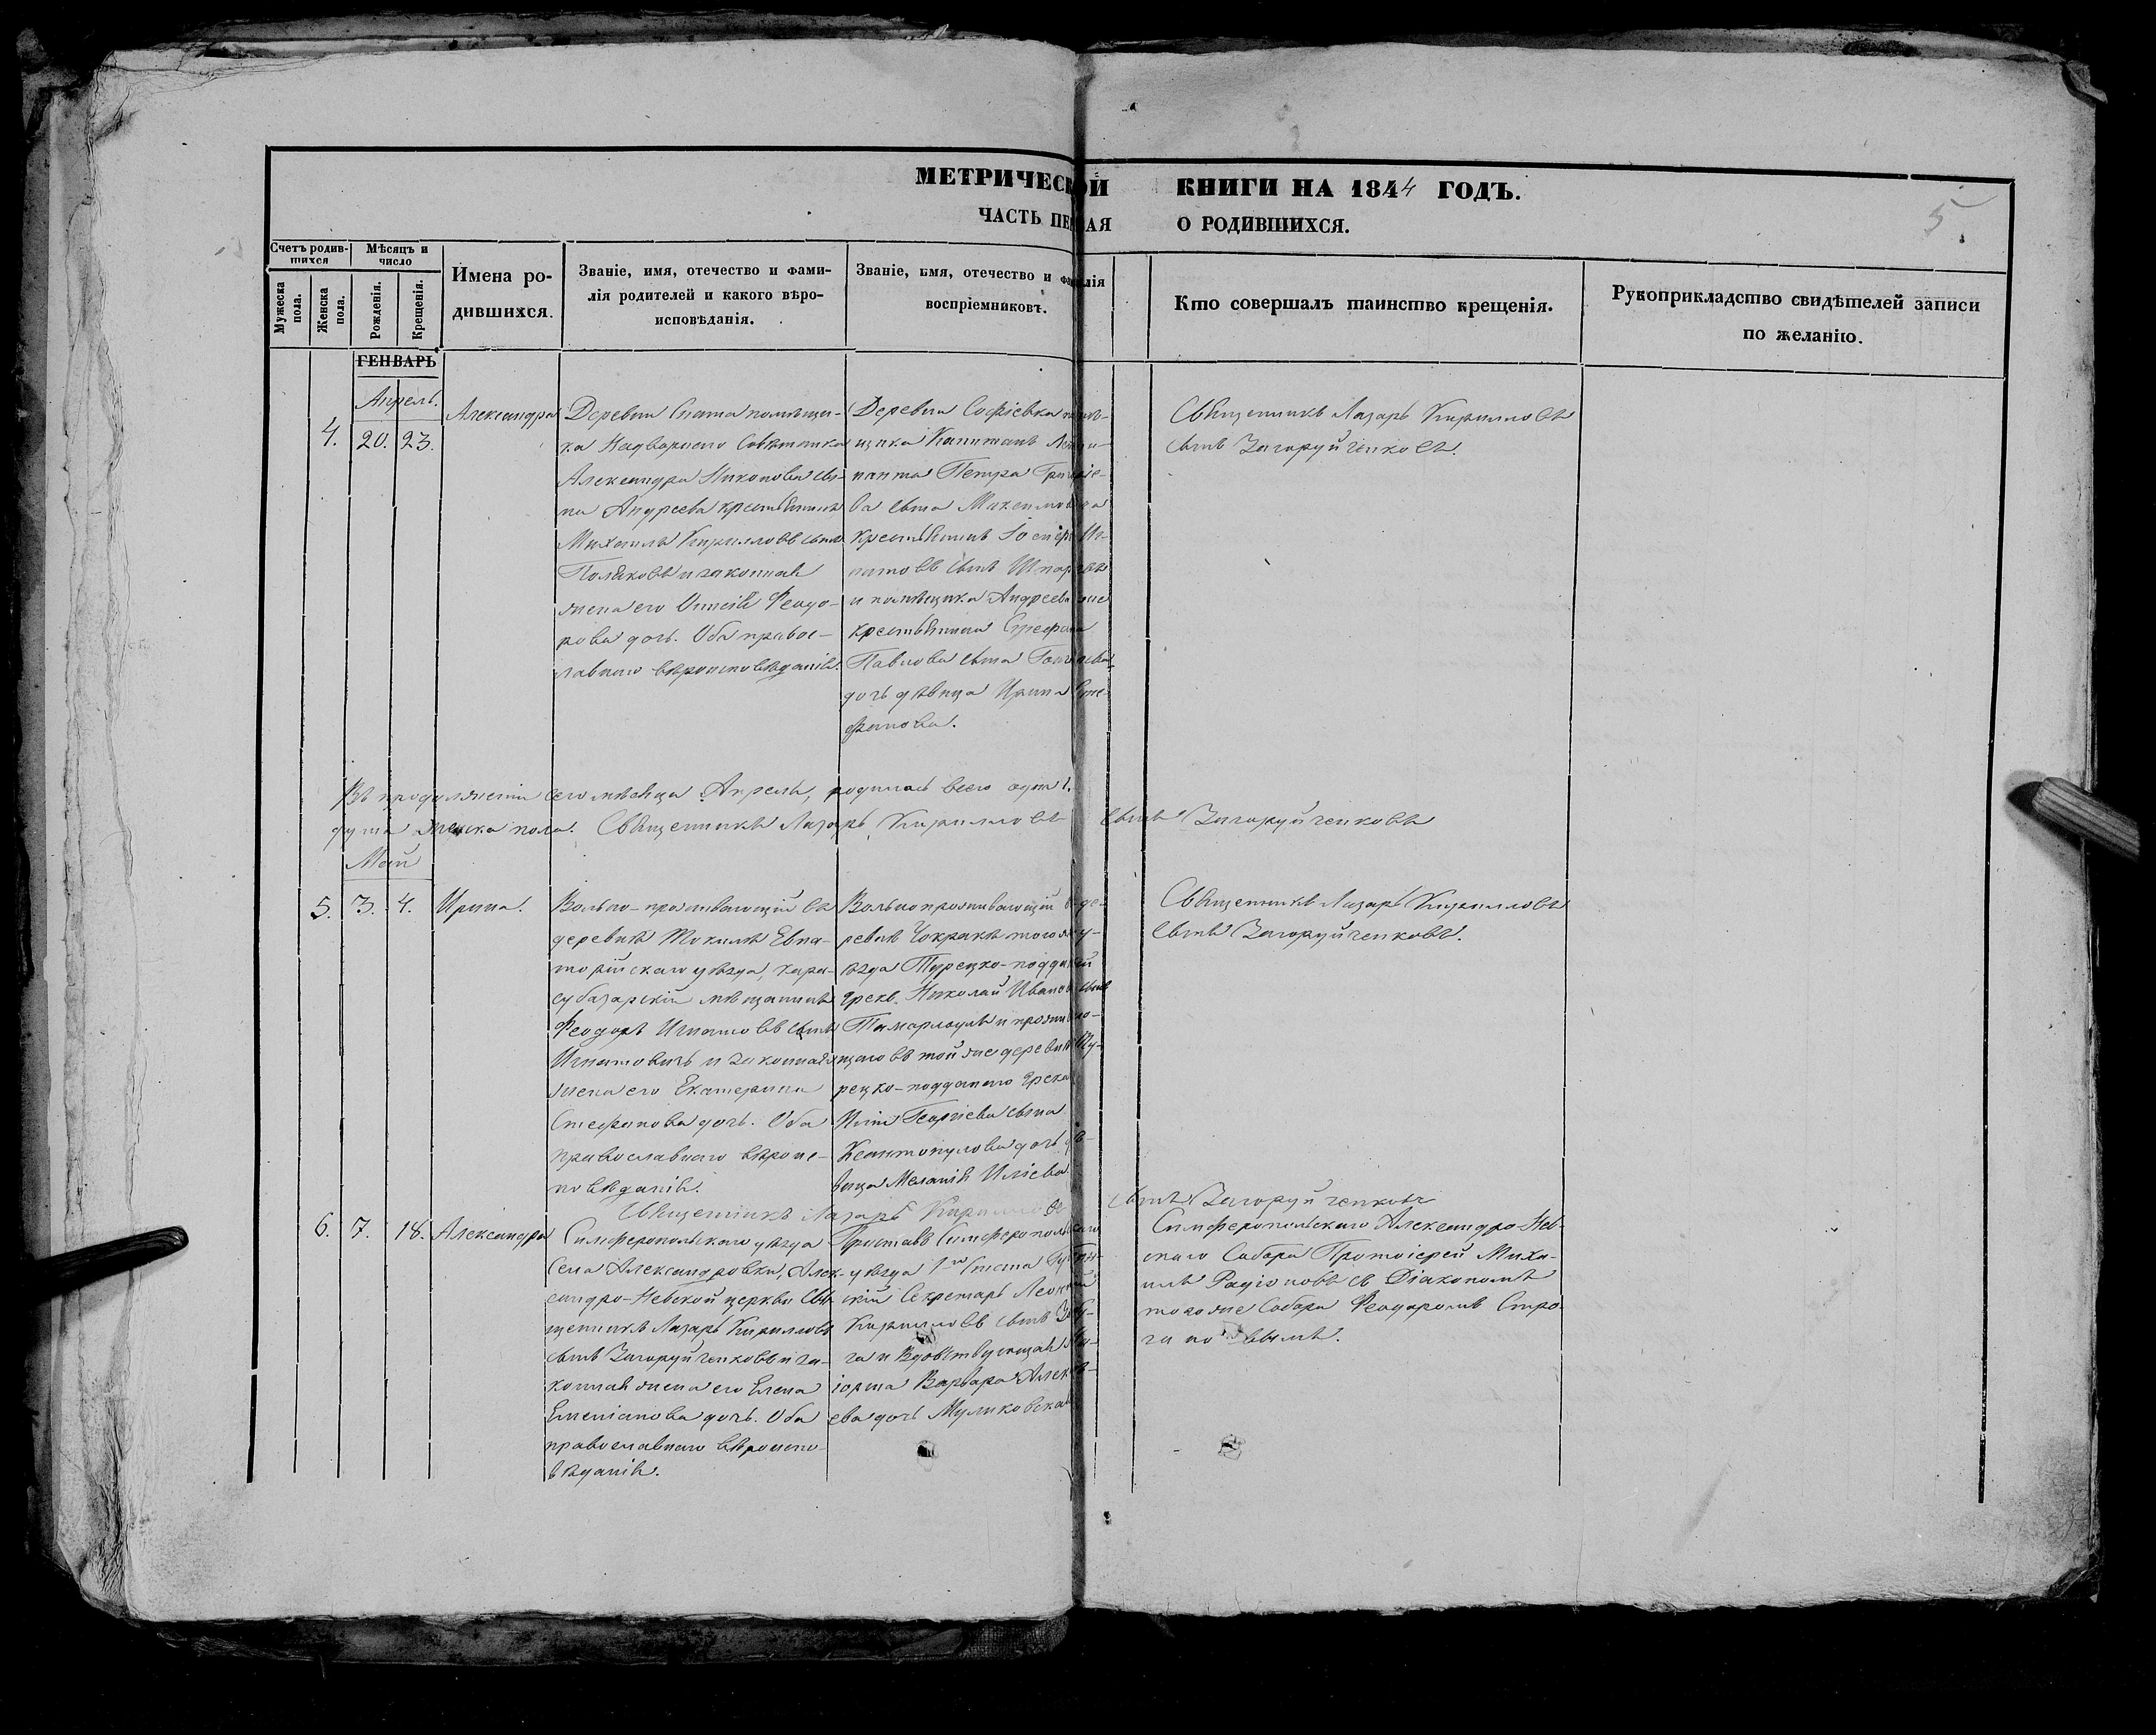 МЕТРИЧЕСКОЙ КНИГИ НА 1844 ГОДЪ.
ЧАСТЬ ПЕРВАЯ О РОДИВШИХСЯ.
5.
Счетъ родив-
шихся
Мужеска пола.
Женска пола.
Мѣсяцъ и
число
Рожденія.
Крещенія.
Имена ро-
дившихся.
Званіе, имя, отечество и фами-
лія родителей и какого вѣро-
исповѣданія.
Званіе, имя, отечество и фамилія
воспріемниковъ.
Кто совершалъ таинство крещенія.
Рукоприкладство свидѣтелей записи
по желанію.
ГЕНВАРЬ
Апрель.
4. 20. 23.
Александра
Деревни Спата помѣщи-
ка Надворнаго Совѣтника
Александра Никонова сы-
на Андреева крестьянинъ
Михаилъ Кирилловъ сынъ
Поляковъ и законная
жена его Феодо-
рова дочь. Оба правос-
лавнаго вѣроисповѣданія.
Деревни Софіевка помѣ-
щика Капитанъ Лейти-
нанта Петра Григорiе-
ва сына Максимовича
крестьянинъ Іосифъ Иг-
натовъ сынъ
и помѣщика Андреева же
крестьянина Стефана
Павлова сына
дочь дѣвица Ирина Сте-
фанова.
Священникъ Лазарь Кирилловъ
сынъ Загоруйченковъ.
Въ продолженіи сего мѣсяца Апреля, родилась всего одна 1.
душа женска пола. Священникъ Лазарь Кирилловъ сынъ Загоруйченковъ
Май
5. 3. 4. Ирина.
Вольно-проживающій въ
деревнѣ Токилъ Евпа-
торійскаго уѣзда, кара-
субазарскій мѣщанинъ
Феодоръ Игнатовъ сынъ
Игнатовичъ и законная
жена его Екатерина
Стефанова дочь. Оба
православнаго вѣроис-
повѣданія.
Вольнопроживающій въ де-
ревнѣ Чокракъ того же у-
ѣзда Турецко-подданный
Грекъ Николай Ивановъ сынъ
и прожива-
щаго въ той же деревнѣ Ту-
рецко-подданнаго Грека
Иліи Георгіева сына
дочь дѣ-
вица Меланія Иліева.
Священникъ Лазарь Кирилловъ
сынъ Загоруйченковъ.
Священникъ Лазарь Кирилловъ сынъ Загоруйченковъ
6. 7. 18. Александра
Симферопольскаго уѣзда
Села Александровки, Алек-
сандро-Невской церкви Свя-
щенникъ Лазарь Кирилловъ
сынъ Загоруйченковъ и за-
конная жена его Елена
Емеліанова дочь. Оба
православнаго вѣроиспо-
вѣданія.
Приставъ Симферопольскаго
уѣзда 1го Стана Губерн-
скій Секретарь Леонтій
Кирилловъ сынъ
и Вдовствующая Ма-
іорша Варвара Алексѣ-
ева дочь Муликовская
Симферопольскаго Александро-Нев-
скаго Собора Протоіерей Миха-
илъ Радіоновъ съ Діакономъ
того же Собора Феодоромъ Стро-
гановымъ.